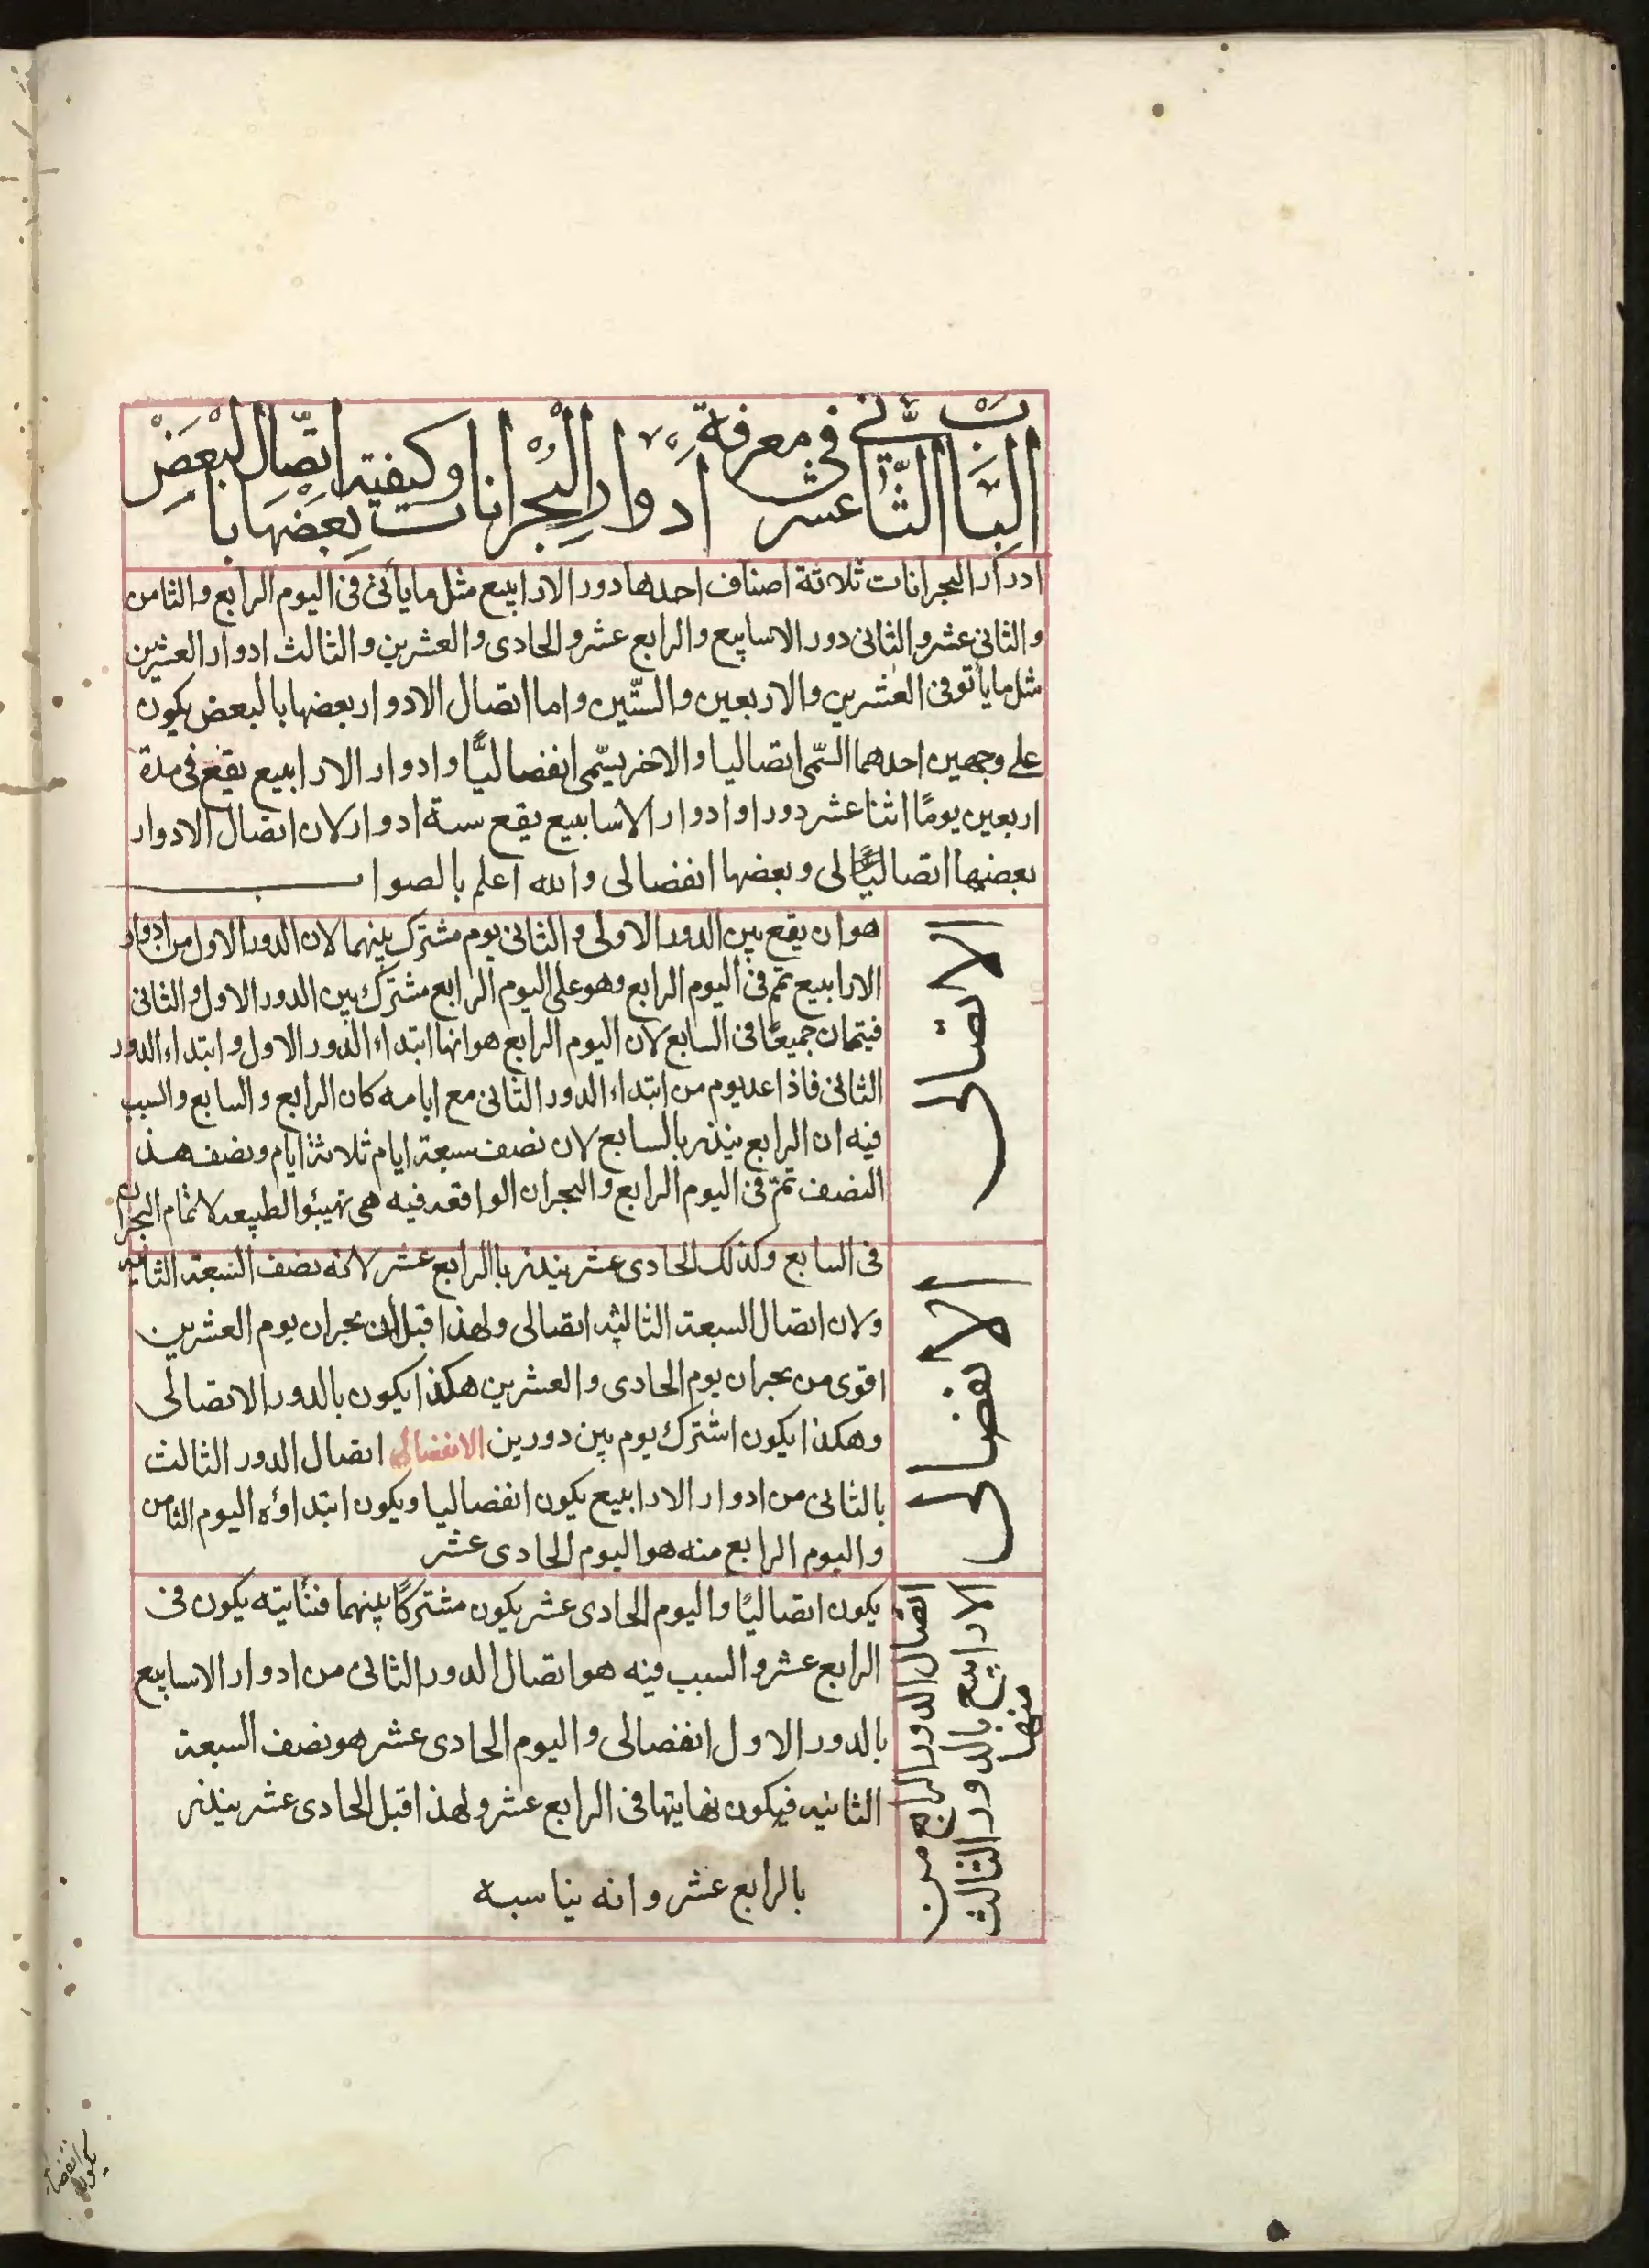 الباب الثاني عشر في معرفة ادوار البحرانات وكيفية اتصال بعضها بالبعض
ادوار البحرانات ثلاثة اصناف احدها دور الارابيع مثل ما يأتى فى اليوم الرابع والثامن
والثانى عشر والثانى دور الاسابيع والرابع عشر والحادى والعشرين والثالث ادوار العشرين
مثل ما يأتو فى العشرين والاربعين والستّين واما اتصال الادوار بعضها بالبعض يكون
على وجهين احدهما السمّى اتصاليا والاخر يسّمى انفصاليًّا وادوار الارابيع يقع فى مدة
اربعين يومًا اثنا عشر دورا وادوار الاسابيع يقع ستة ادوار لان اتصال الادوار
بعضها اتصاليًّالى وبعضها انفصالى والله اعلم بالصواب
الاتصالى
هو ان يقع بين الدور الاولى والثانى يوم مشترك بينهما لان الدور الاول من ادوار
الارابيع تمّ فى اليوم الرابع وهو على اليوم الرابع مشترك بين الدور الاول والثانى
فيتمان جميعًا فى السابع لان اليوم الرابع هو انها ابتداء الدور الاول وابتداء الدور
الثانى فاذا عد يوم من ابتداء الدور الثانى مع ايامه كان الرابع والسابع والسبب
فيه ان الرابع ينذر بالسابع لان نصف سبعة ايام ثلاثة ايام ونصف هذ
النصف تمّ فى اليوم الرابع والبحران الواقعه فيه هى تهيئو الطبيعه لاتمام البحران
الانفصالى
فى السابع وكذلك الحادى عشر ينذر باالرابع عشر لانه نصف السبعة الثانيه
ولان اتصال السبعة الثالثه اتصالى ولهذا قبل ان بحران يوم العشرين
اقوى من بحران يوم الحادى والعشرين هكذا يكون بالدور الاتصالى
وهكذا يكون اشترك يوم بين دورين الانفصالى اتصال الدور الثالث
بالثانى من ادوار الارابيع يكون انفصاليا ويكون ابتداؤه اليوم الثامن
واليوم الرابع منه هو اليوم الحادى عشر
اتصال الدور الرابع من
الارابيع بالدور الثالث
منها
يكون اتصاليًا واليوم الحادى عشر يكون مشتركًا بينهما فنأيته يكون فى
الرابع عشر والسبب فيه هو اتصال الدور الثانى من ادوار الاسابيع
بالدور الاول انفصالى واليوم الحادى عشر هو نصف السبعة
الثانيه فيكون نهايتها فى الرابع عشر ولهذا قبل الحادى عشر ينذر
بالرابع عشر وانه يناسبه
يكون